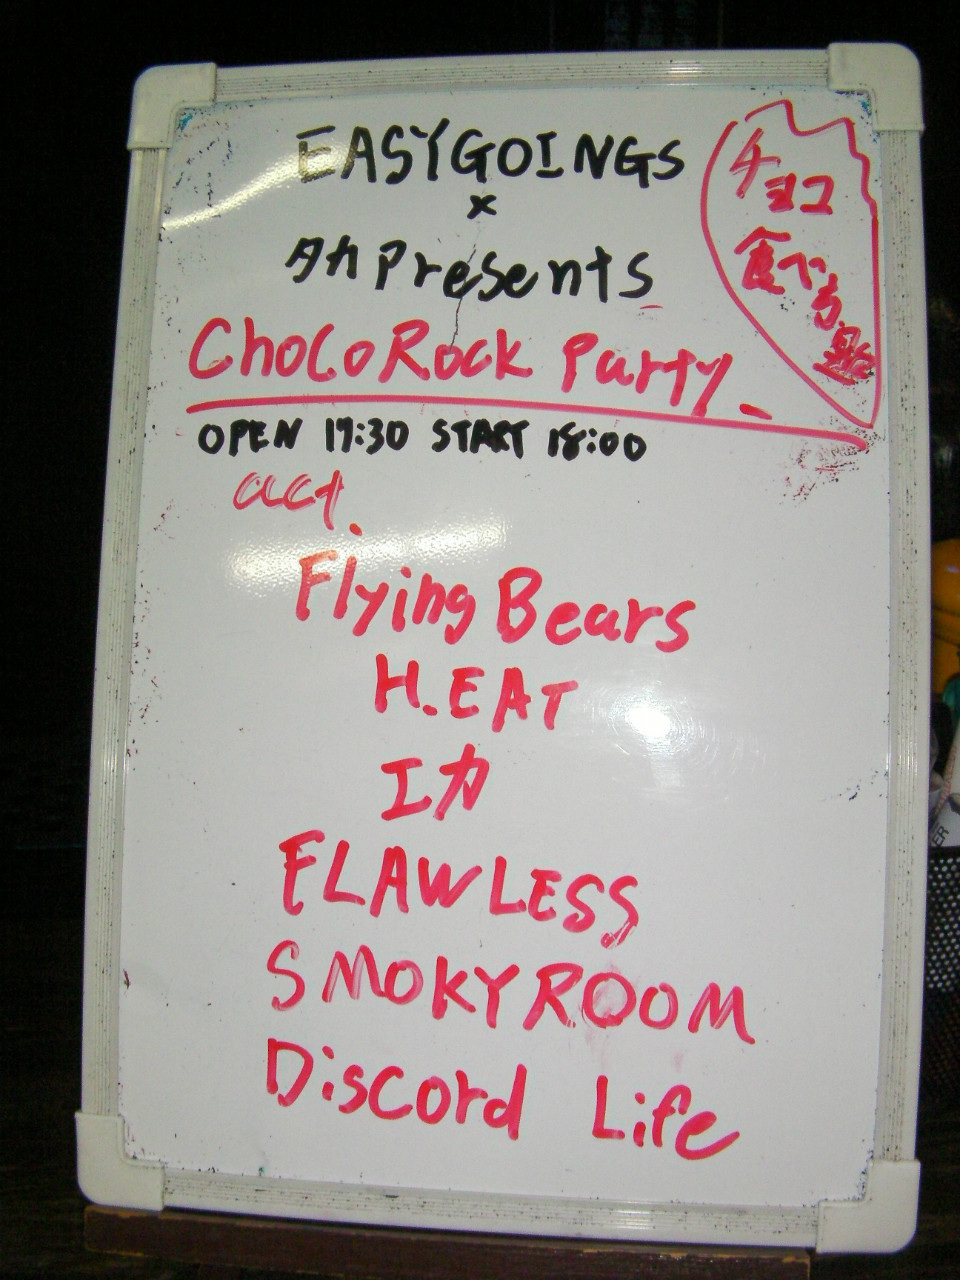 EASYGOINGS
×
タカ Presents
ChocoRock Party
OPEN 17:30 START 18:00
act.
Flying Bears
H.EAT
エカ
FLAWLESS
SMOKY ROOM
Discord Life
チョコ
食べ
ER